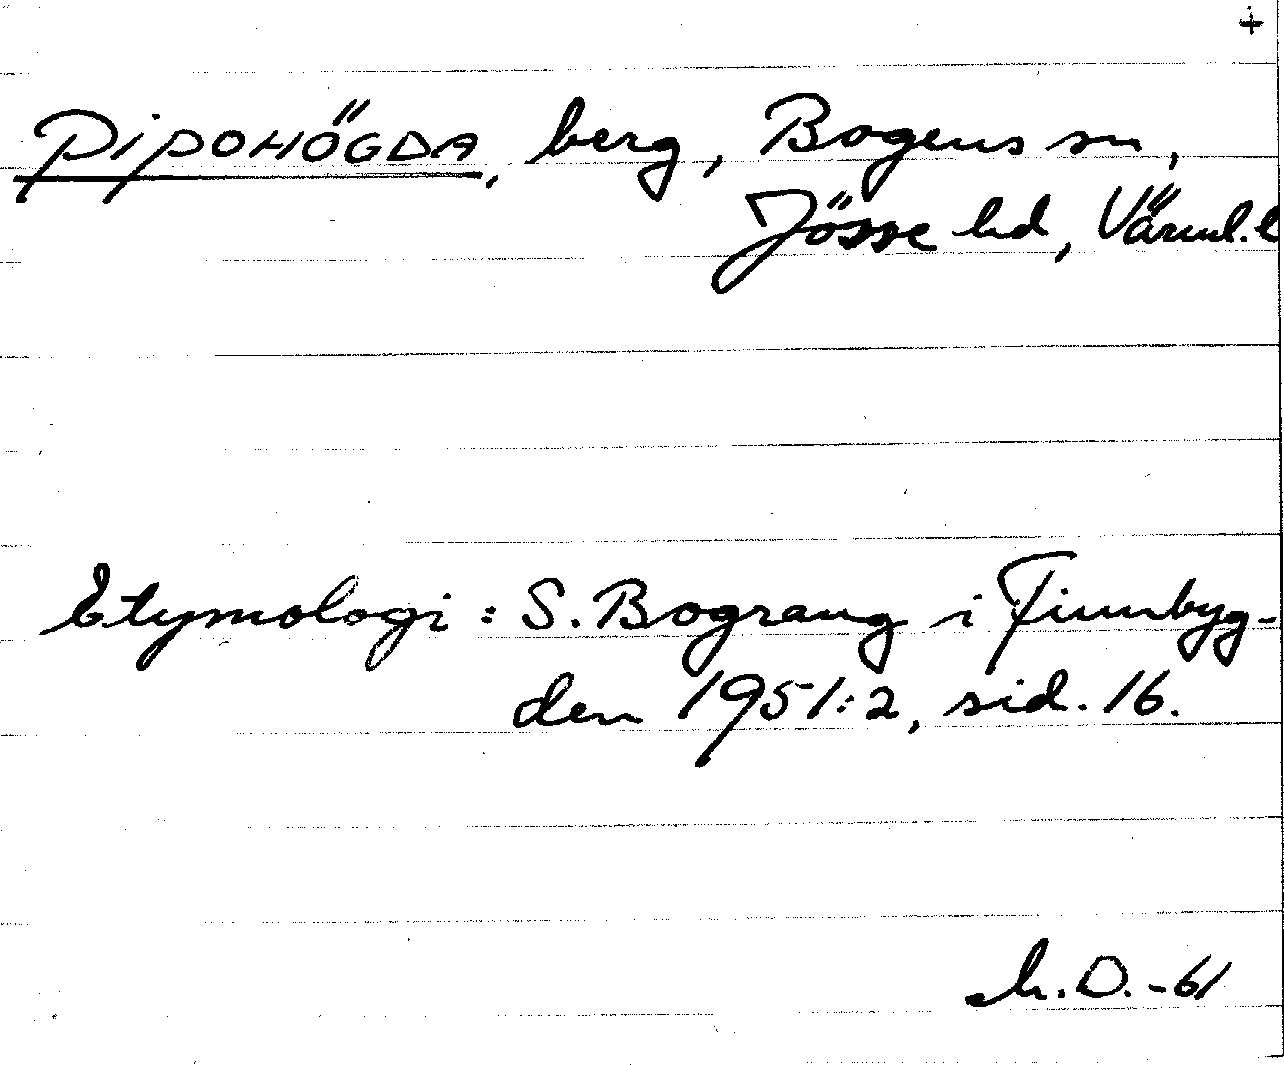 +
PIPOHÖGDA, berg, Bogens sn,
Jösse hd, Värml. l
Etymologi: S. Bograng i Finnbyg-
den 1951:2, sid. 16.
D. -61